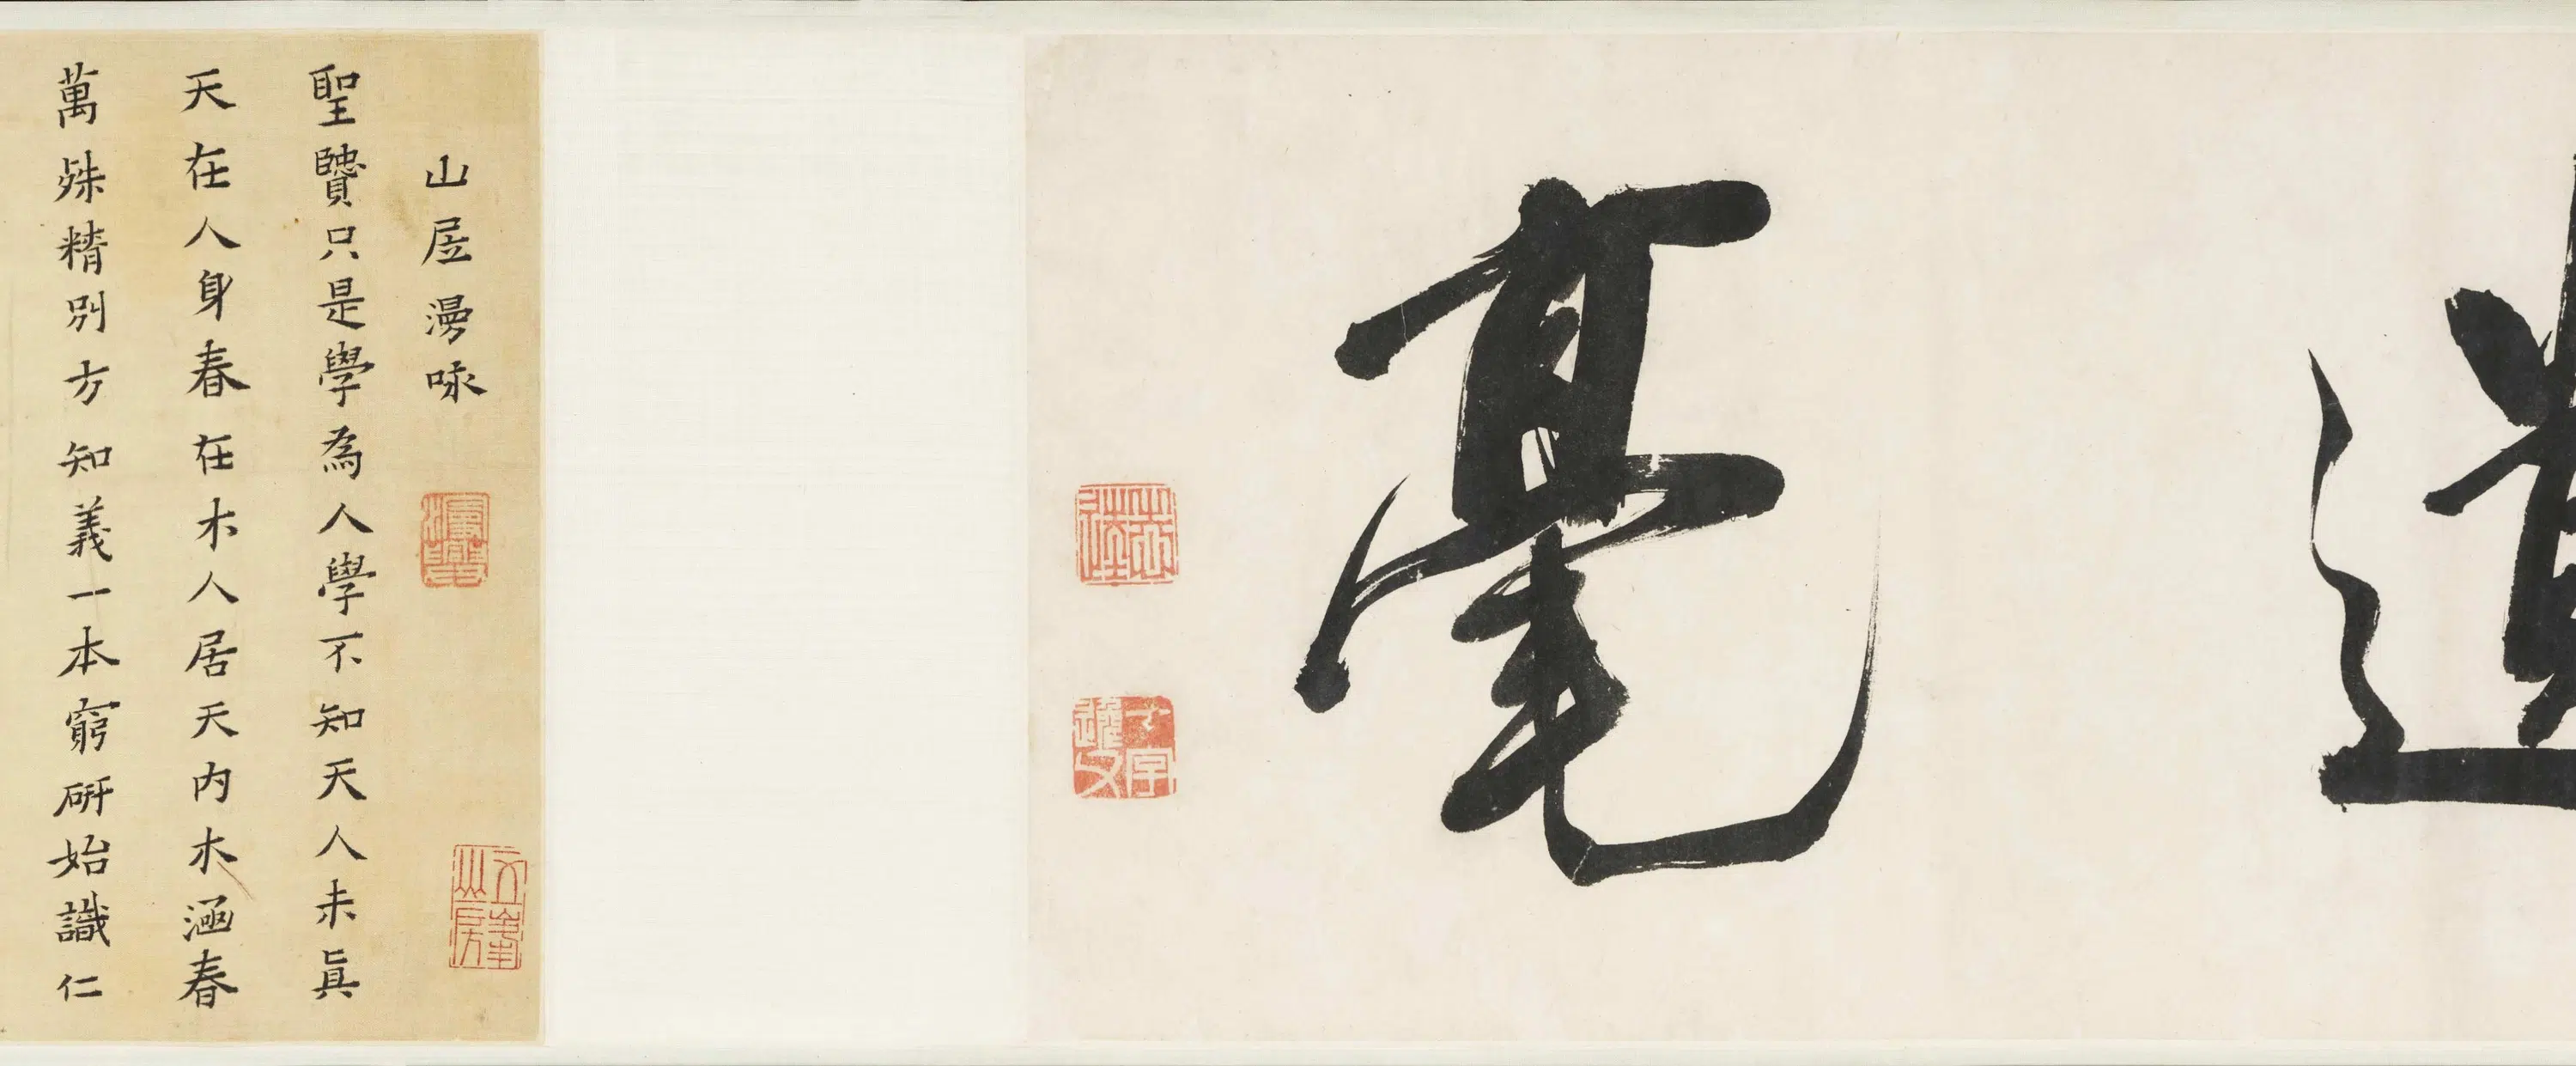 遺
毫
山居漫咏
聖賢只是學為人學不知天人未真
天在人身春在木人居天内木涵春
萬殊精別方知義一本窮研始識仁